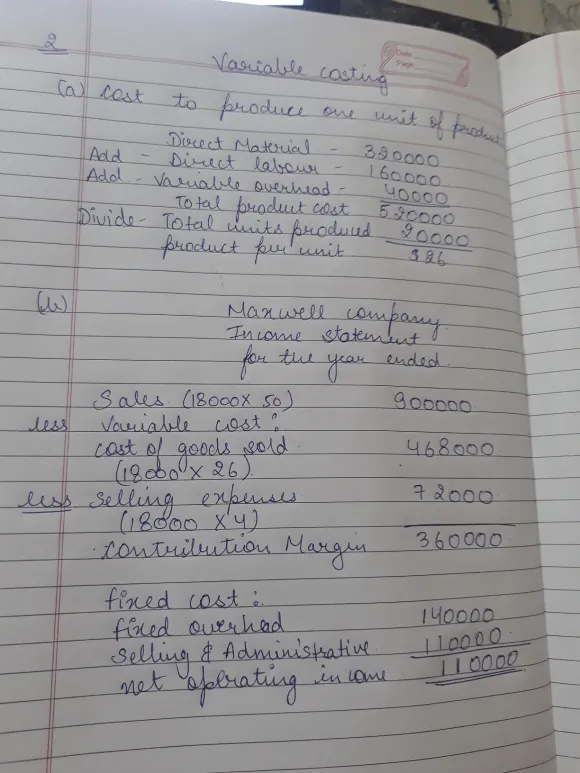 2
Date
Page
Variable costing
(a) cost to produce one unit of product
Direct Material - 320000
Add - Direct labour - 160000
Add - Variable overhead - 40000
Total product cost 520000
Divide - Total units produced 20000
product per unit $26
(b) Maxwell company
Income statement
for the year ended
Sales (18000 x 50) 900000
less variable cost :
cost of goods sold 468000
(18000 x 26)
less selling expenses 72000
(18000 x 4)
contribution Margin 360000
fixed cost :
fixed overhead 140000
selling & Administrative 110000
net operating income 110000